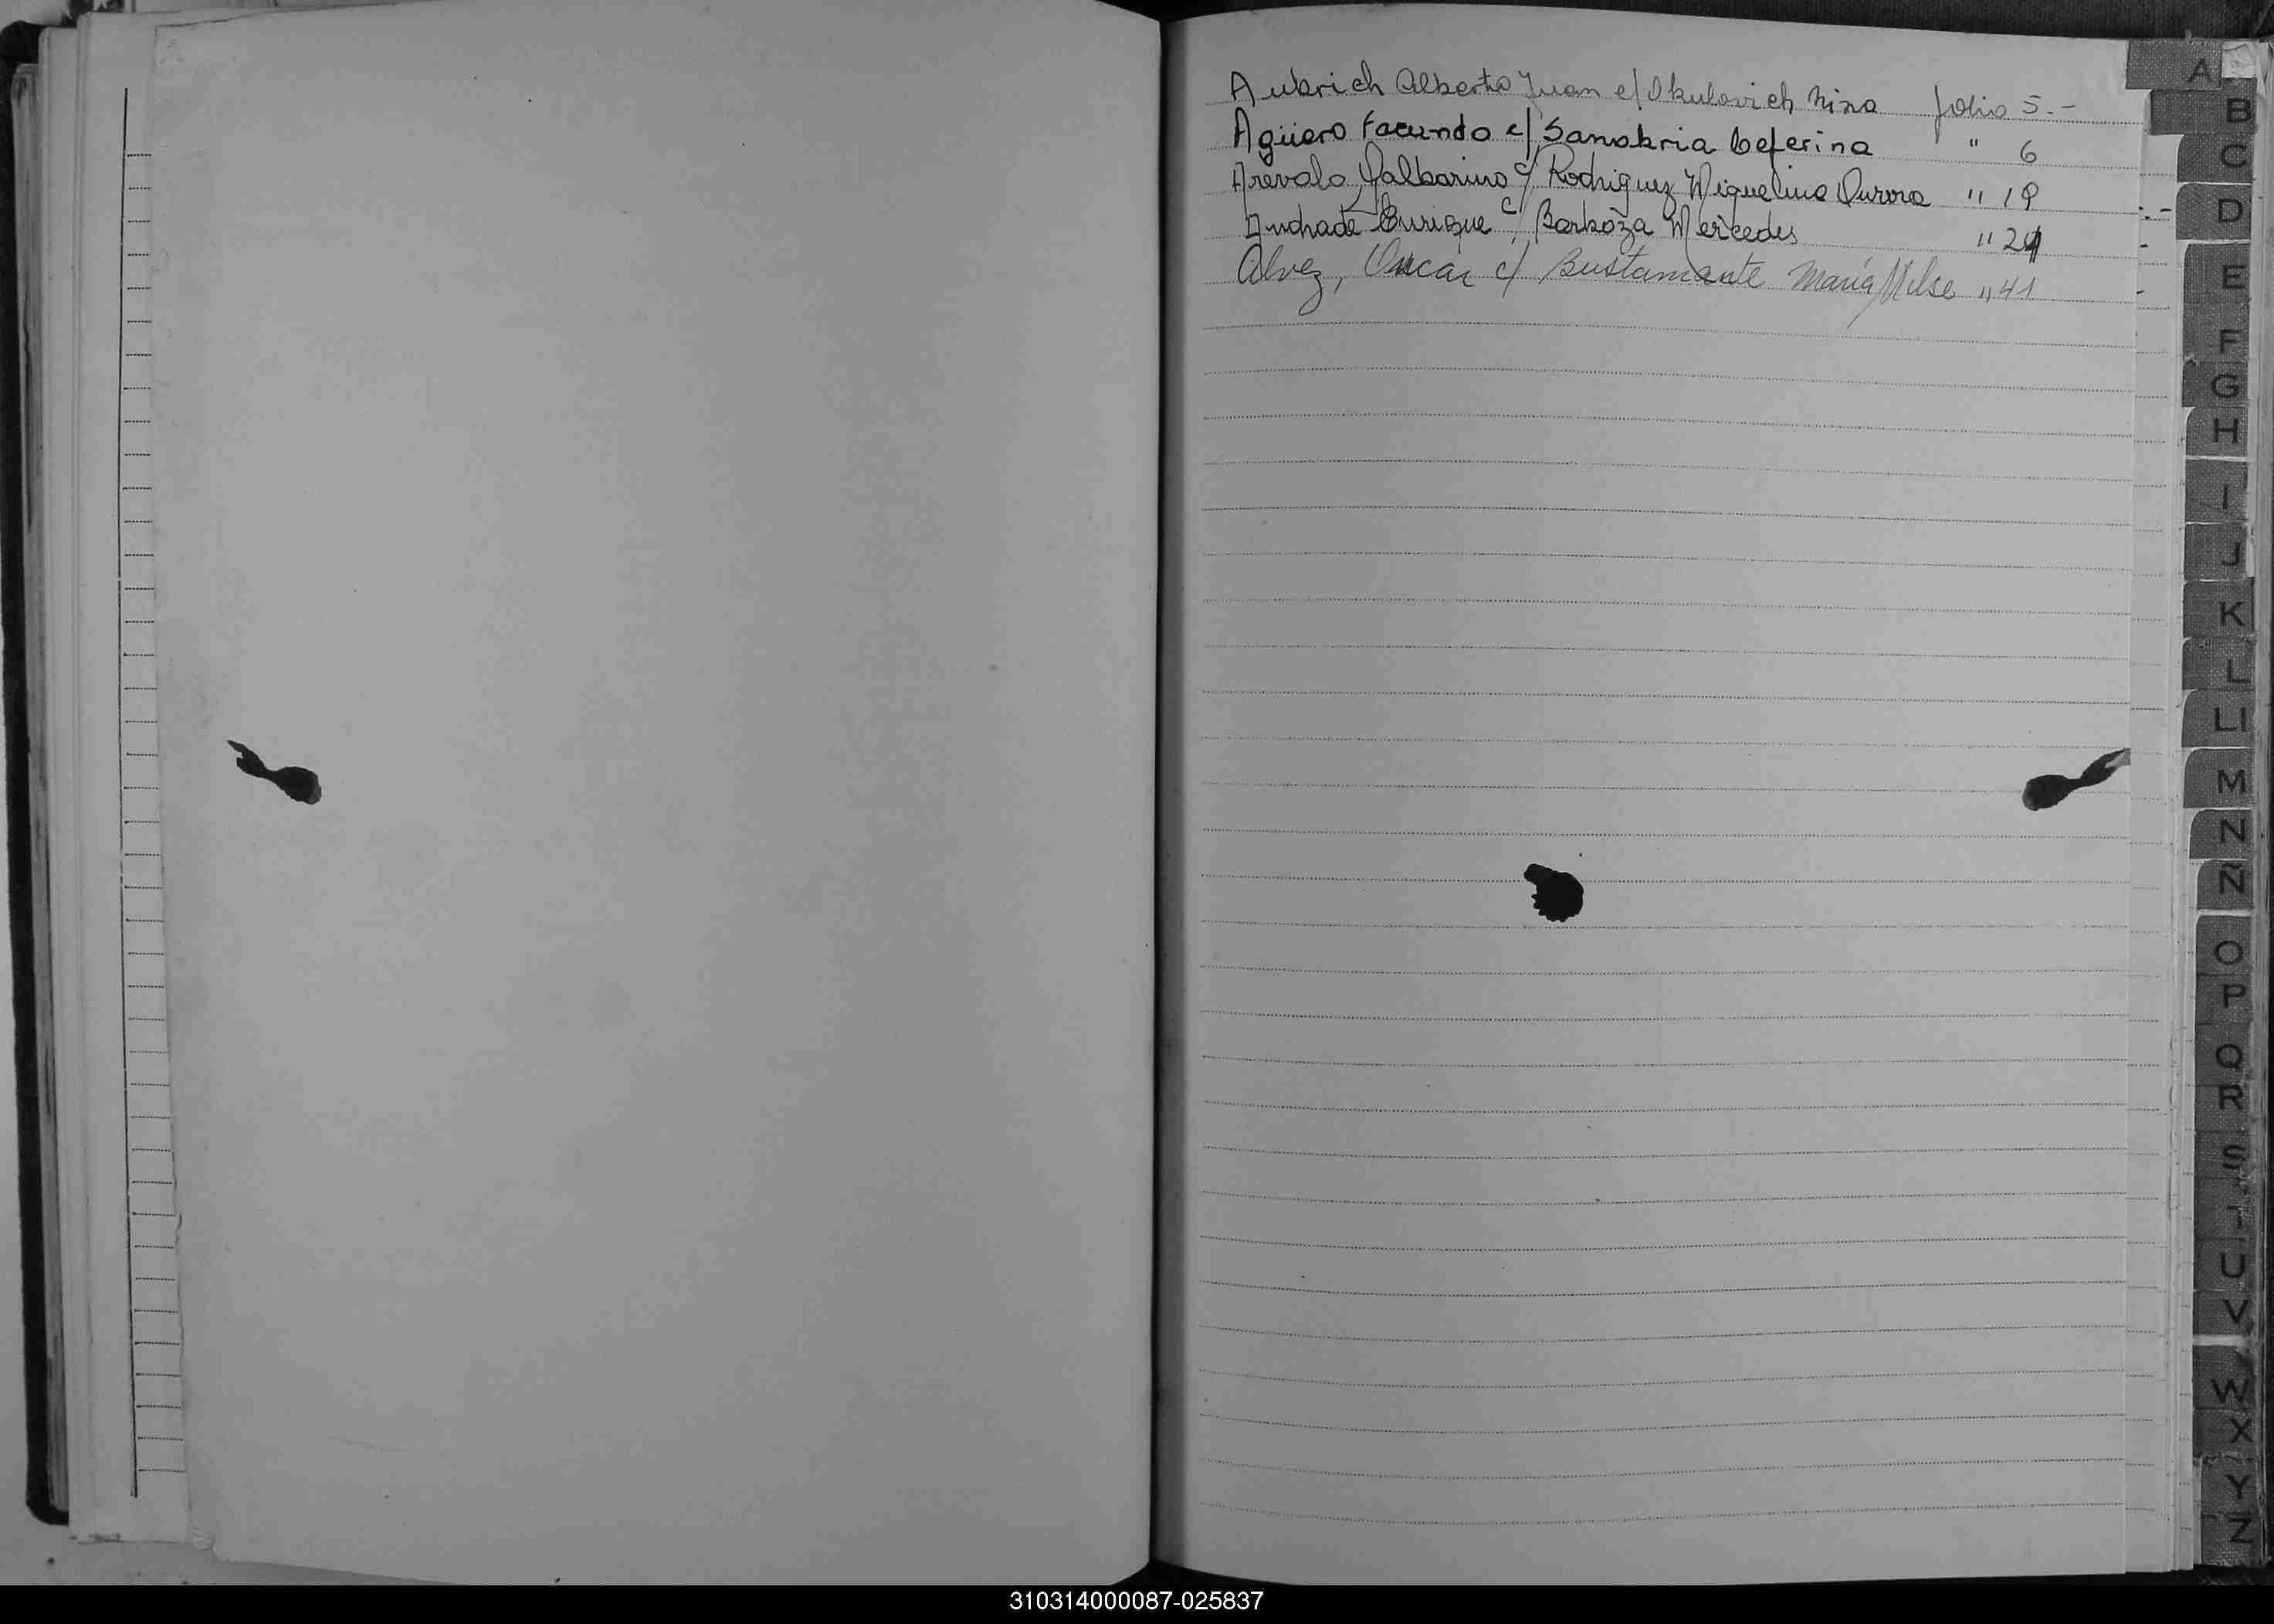 Aubrich Alberto Juan c/ Okulovich Nina folio 5.-
Agüero Facundo c/ Sanabria Ceferina " 6
Arevalo Galbarino c/ Rodriguez Miguelina Aurora " 19
Andrade Enrique c/ Barboza Mercedes " 24
Alvez, Oscar c/ Bustamante María Nilse " 41
A
B
C
D
E
F
G
H
I
J
K
L
Ll
M
N
Ñ
O
P
Q
R
S
T
U
V
W
X
Y
Z
310314000087-025837